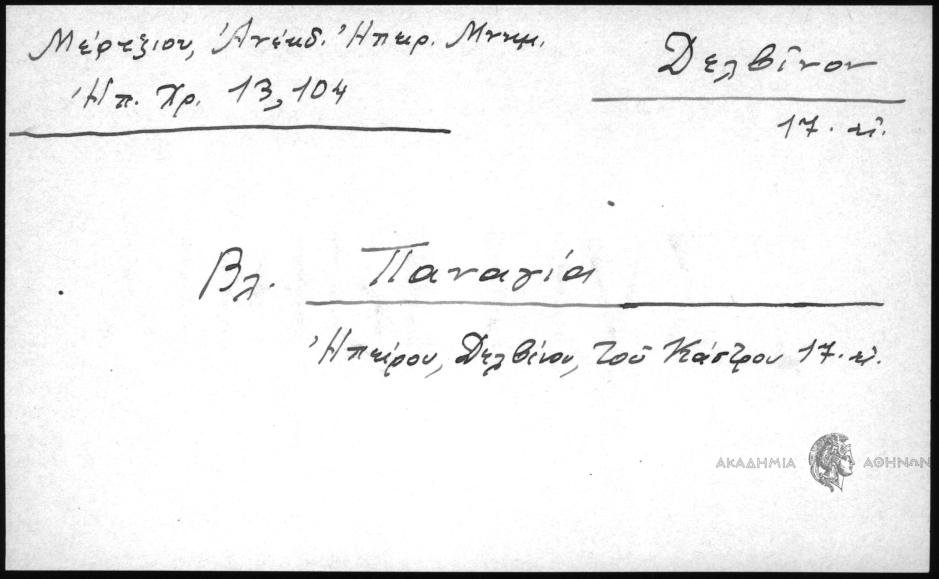 Μέρτζιου, Ἀνέκδ. Ἠπειρ. Μνημ.
Ἠπ. Χρ. 13, 104
Δελβῖνον
17. αἰ.
Βλ. Παναγία
Ἠπείρου, Δελβίνου, τοῦ Κάστρου 17. αἰ.
ΑΚΑΔΗΜΙΑ ΑΘΗΝΩΝ